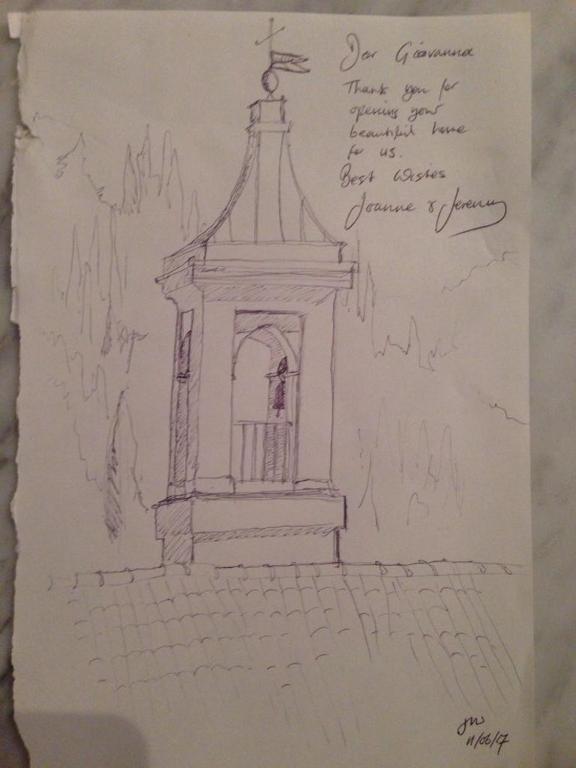 Dear Giovanna
Thank you for
opening your
beautiful home
for us.
Best Wishes
Joanne & Jeremy
JW
11/06/17